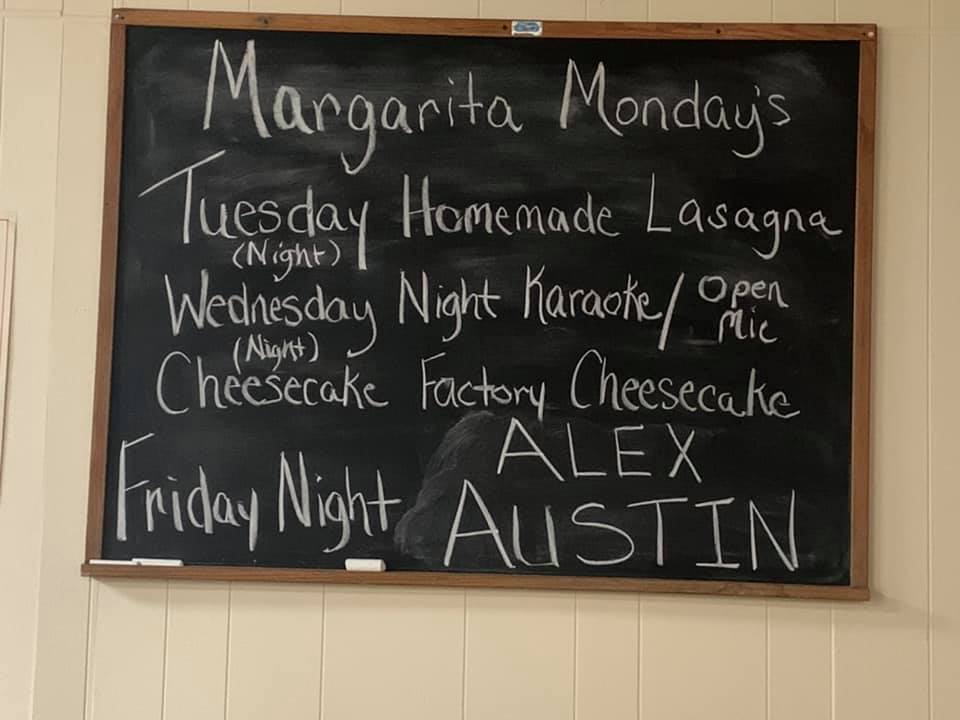 Margarita Monday's
Tuesday Homemade Lasagna
(Night)
Wednesday Night Karaoke/ Open Mic
(Night)
Cheesecake Factory Cheesecake
Friday Night ALEX AUSTIN